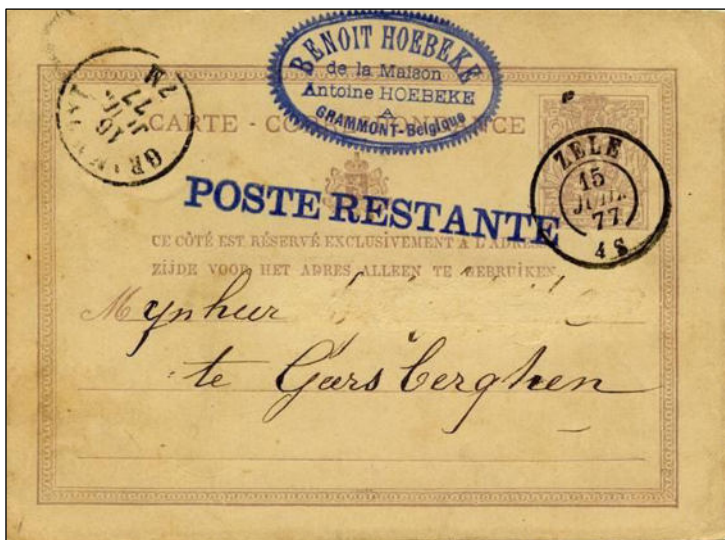 BENOIT HOEBEKE
de la Maison
Antoine HOEBEKE
A
GRAMMONT-Belgique
16
77
7M
CARTE - CORRESPONDANCE
ZELE
15
JUIL
77
4 S
POSTE RESTANTE
CE CÔTÉ EST RÉSERVÉ EXCLUSIVEMENT A L'ADRESSE
ZIJDE VOOR HET ADRES ALLEEN TE GEBRUIKEN.
Mynheer
te Geersberghen